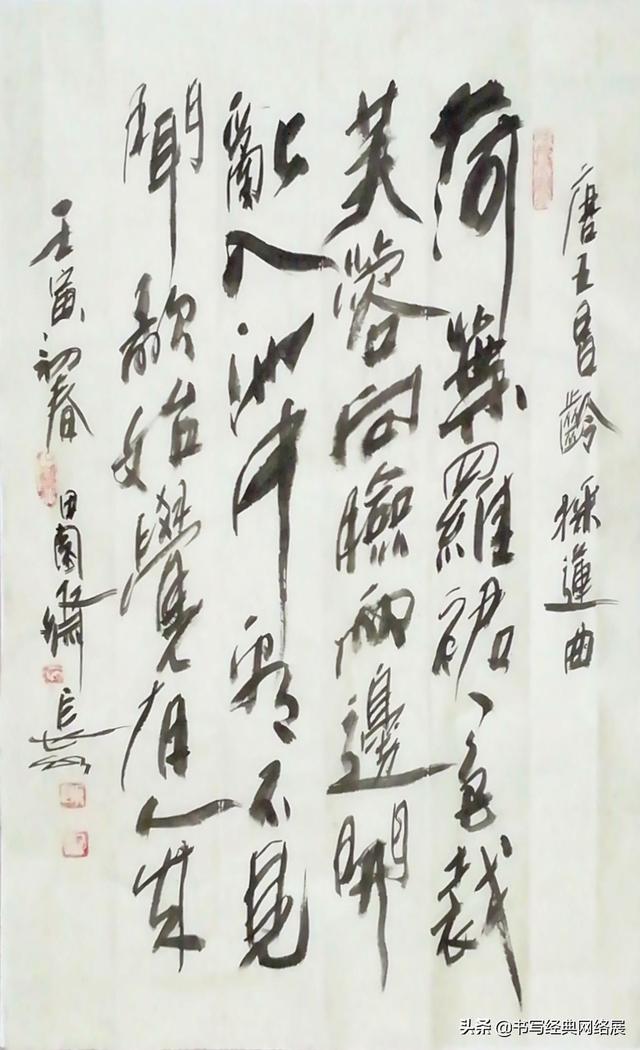 唐王昌齡採蓮曲
荷葉羅裙一色裁
芙蓉向臉兩邊開
亂入池中看不見
聞歌始覺有人來
壬寅初春
头条 @书写经典网络展